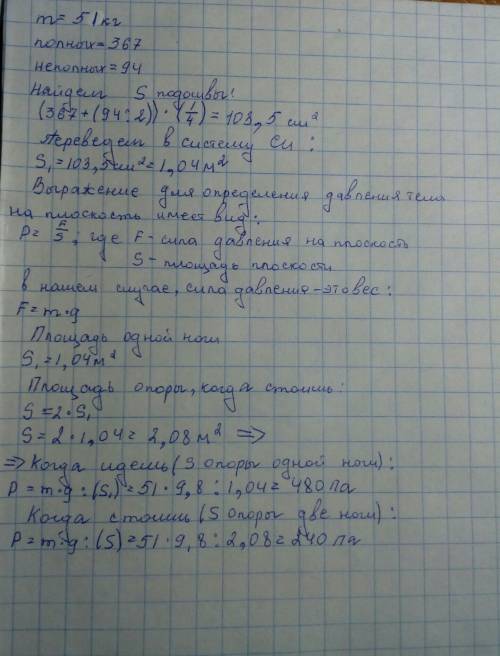 m = 51 кг
полных = 367
неполных = 94
Найдем S подошвы:
(367+(94:2))·(1/4) = 103,5 см²
Переведем в систему Си:
S₁=103,5 см²=1,04 м²
Выражение для определения давления тела
на плоскость имеет вид:
P = F/S; где F - сила давления на плоскость
S - площадь плоскости
в нашем случае, сила давления - это вес:
F=m·g
Площадь одной ноги
S₁=1,04 м²
Площадь опоры, когда стоишь:
S=2·S₁
S=2·1,04=2,08 м² =>
=> Когда идешь (S опоры одной ноги):
P = m·g:(S₁)=51·9,8:1,04=480 па
Когда стоишь (S опоры две ноги):
P = m·g:(S)=51·9,8:2,08=240 па